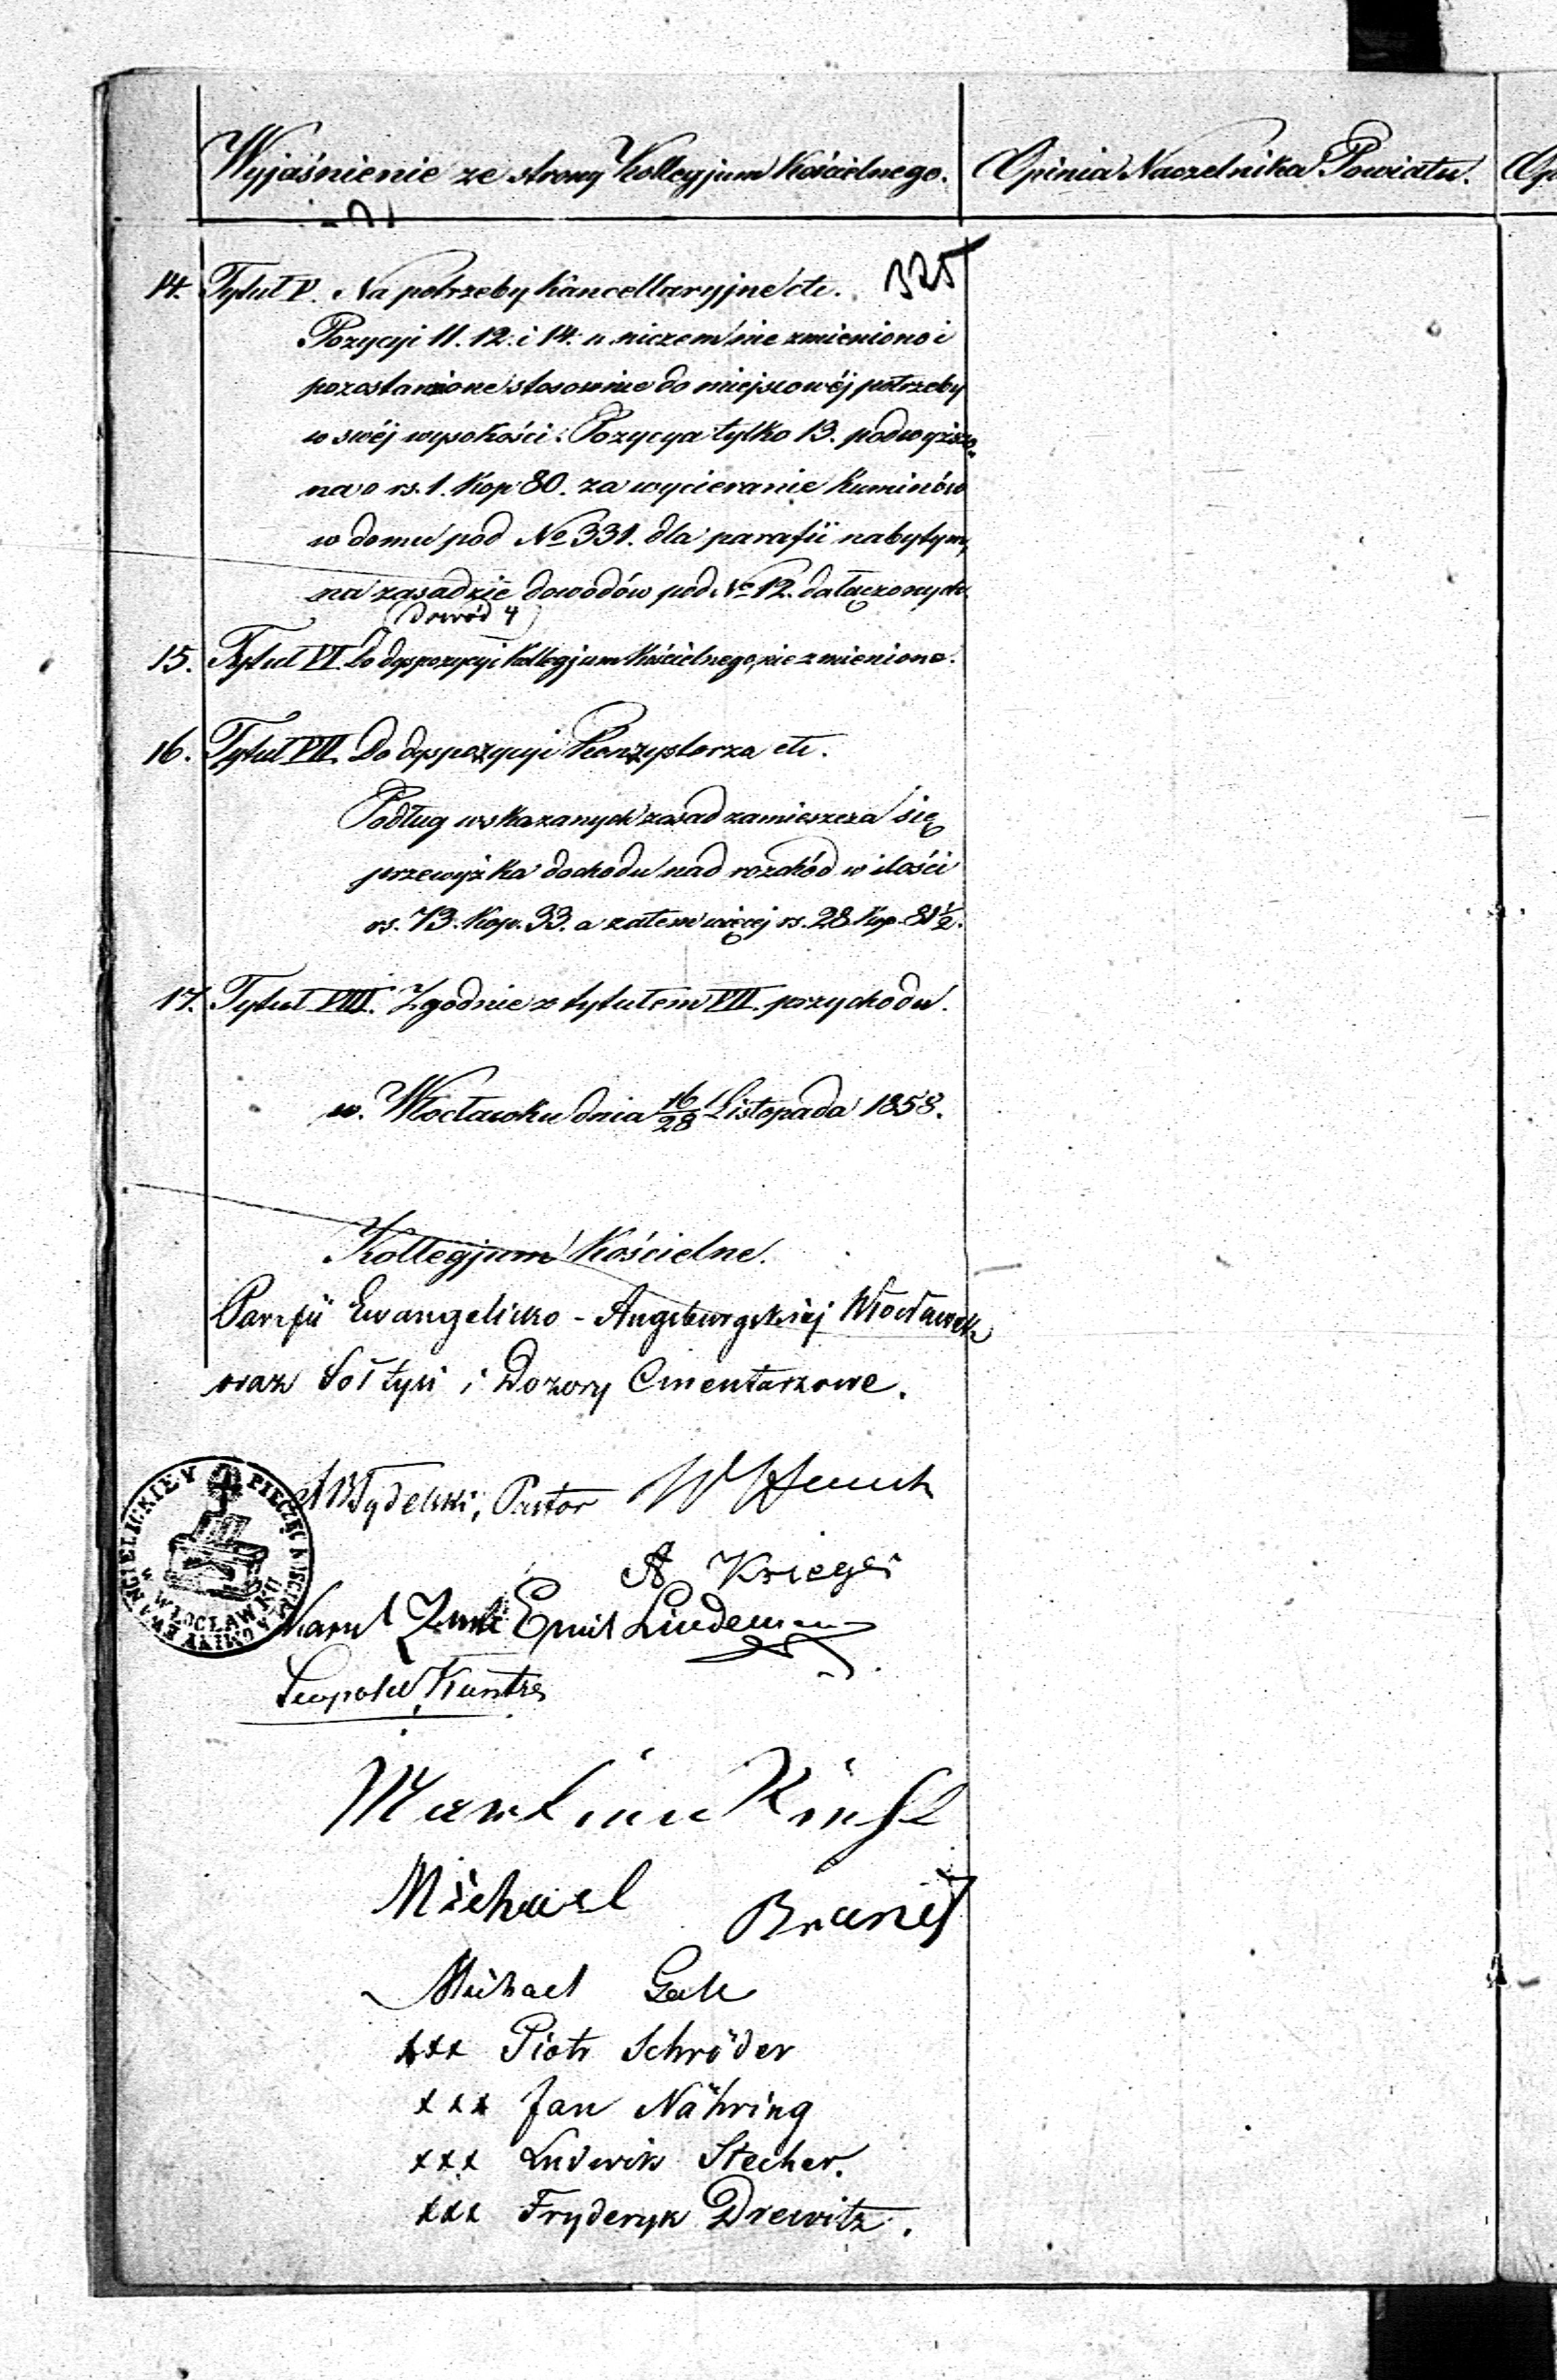 Wyjaśnienie ze strony Kollegjum Kościelnego.
Opinia Naczelnika Powiatu.
Op
325
14. Tytuł V. Na potrzeby kancellaryjne etc.
Pozycyi 11. 12. i 14. w niczem nie zmieniono i
pozostawione stosownie do miejscowéj potrzeby
w swéj wysokości. Pozycya tylko 13. podwyższo-
na o rs. 1. Kop 80. za wycieranie kuminów
w domu pod No 331. dla parafii nabytym,
na zasadzie dowodów pod No 12. dołączonych.
(Dowód 4)
15. Tytuł VI. Do dyspozycyi Kollegjum Kościelnego, nie zmieniono.
16. Tytuł VII. Do dyspozycyi Konzystorza etc.
Podług wskazanych zasad zamieszcza się
przewyżka dochodu nad rozchód w ilości
rs. 73. Kop. 33. a zatem więcej rs. 28 Kop. 81½.
17. Tytuł VIII. Zgodnie z tytułem VII. przychodu.
w. Włocławku dnia 16/28 Listopada 1858.
Kollegjum Kościelne.
Parafii Ewangelicko-Augsburgskiej Włocławek
oraz Sołtysi i Dozory Cmentarzowe.
Pastor
A Krieger
Karol Emil Lindemann
Leopold
Martin
Michael
Michael
xxx Piotr Schröder
xxx Jan Nähring
xxx Ludwik Stecher.
xxx Fryderyk Drewitz.
PIECZĘĆ GMINY EWANGIELICKIEY
w WŁOCŁAWKU